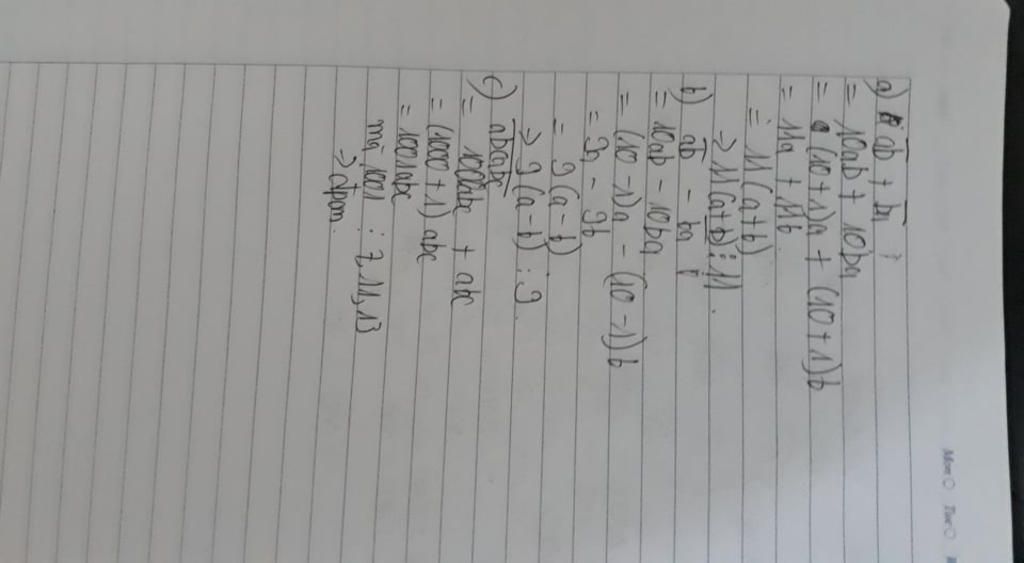 a) ab + ba
= 10ab + 10ba
= (10+1)a + (10+1)b
= 11a + 11b
= 11(a+b)
=> 11(a+b) ⋮ 11.
b) ab - ba
= 10ab - 10ba
= (10-1)a - (10-1)b
= 9a - 9b
= 9(a-b)
=> 9(a-b) ⋮ 9.
c) abcabc
= 1000abc + abc
= (1000+1) abc
= 1001abc
mà 1001 ⋮ 7, 11, 13
=> đpcm.
Mon Tue